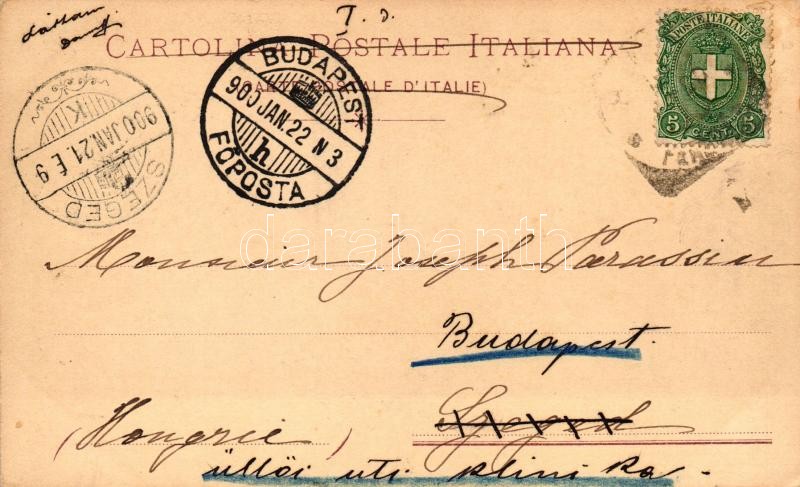 I. d.
CARTOLINA POSTALE ITALIANA
(CARTE POSTALE D'ITALIE)
POSTE ITALIANE
5 CENT. 5
BUDAPEST
900 JAN. 22 N 3
h
FŐPOSTA
900 JAN. 21. É 9
K
SZEGED
darabanth
Monsieur Joseph Parassin
Budapest.
Szeged
(Hongrie)
üllői uti klinika.